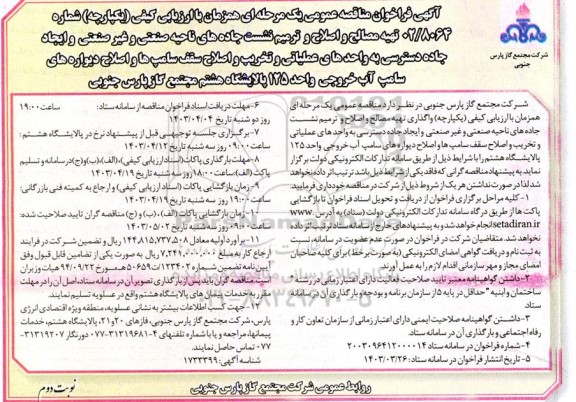 آگهی فراخوان مناقصه عمومی یک مرحله ای همزمان با ارزیابی کیفی (یکپارچه) شماره
۰۲/۸۰۶۴ تهیه مصالح و اصلاح و ترمیم نشست جاده های ناحیه صنعتی و غیر صنعتی و ایجاد
جاده دسترسی به واحد های عملیاتی و تخریب و اصلاح سقف سامپ ها و اصلاح دیواره های
سامپ آب خروجی واحد ۱۲۵ پالایشگاه هشتم مجتمع گاز پارس جنوبی
شرکت مجتمع گاز پارس جنوبی
شرکت مجتمع گاز پارس جنوبی در نظر دارد مناقصه عمومی یک مرحله ای
همزمان با ارزیابی کیفی (یکپارچه) واگذاری تهیه مصالح و اصلاح و ترمیم نشست
جاده های ناحیه صنعتی و غیر صنعتی و ایجاد جاده دسترسی به واحد های عملیاتی
و تخریب و اصلاح سقف سامپ ها و اصلاح دیواره های سامپ آب خروجی واحد ۱۲۵
پالایشگاه هشتم را با شرایط ذیل از طریق سامانه تدارکات الکترونیکی دولت برگزار
نماید. به پیشنهاد مناقصه گرانی که فاقد یکی از شرایط ذیل باشد ترتیب اثر داده نخواهد
شد لذا در صورت نداشتن هر یک از شروط ذیل از شرکت در مناقصه خودداری فرمایید.
۱- کلیه مراحل برگزاری فراخوان از دریافت و تحویل اسناد فراخوان تا بازگشایی
پاکت ها از طریق درگاه سامانه تدارکات الکترونیکی دولت (ستاد) به آدرس www.
setadiran.ir انجام خواهد شد و به پیشنهادهای خارج از سامانه ستاد ترتیب اثر داده
نخواهد شد. متقاضیان شرکت در فراخوان در صورت عدم عضویت در سامانه، نسبت
به ثبت نام و دریافت گواهی امضای الکترونیکی (به صورت برخط) برای کلیه صاحبان
امضای مجاز و مهر سازمانی اقدام لازم را به عمل آورند.
۲- داشتن گواهینامه معتبر تایید صلاحیت فعالیت دارای اعتبار زمانی در رشته
ساختمان و ابنیه "حداقل در پایه ۵ از سازمان برنامه و بودجه و بارگذاری آن در سامانه
ستاد.
۳- داشتن گواهینامه صلاحیت ایمنی دارای اعتبار زمانی از سازمان تعاون کار و
رفاه اجتماعی و بارگذاری آن در سامانه ستاد
۴- شماره فراخوان در سامانه ستاد ۲۰۰۳۰۹۶۴۱۲۰۰۰۰۱۴
۵- تاریخ انتشار فراخوان در سامانه ستاد: ۱۴۰۳/۰۳/۲۶
۶- مهلت دریافت اسناد فراخوان مناقصه از سامانه ستاد: ساعت ۱۹:۰۰
روز دو شنبه تاریخ ۱۴۰۳/۰۴/۰۴
۷- برگزاری جلسه توجیهی قبل از پیشنهاد نرخ در پالایشگاه هشتم:
ساعت ۰۹:۰۰ روز سه شنبه تاریخ ۱۴۰۳/۰۴/۱۲
۸- مهلت بارگذاری پاکات (اسناد ارزیابی کیفی)، (الف)، (ب) و (ج) در سامانه و تسلیم
پاکت (الف): ساعت ۱۸:۰۰ روز سه شنبه تاریخ ۱۴۰۳/۰۴/۱۹
۹- زمان بازگشایی پاکات (اسناد ارزیابی کیفی) و ارجاع به کمیته فنی بازرگانی:
ساعت ۰۹:۰۰ روز سه شنبه تاریخ ۱۴۰۳/۰۴/۱۹
۱۰- زمان بازگشایی پاکات (الف)، (ب) و (ج) مناقصه گران تایید صلاحیت شده:
ساعت ۰۹:۰۰ روز سه شنبه تاریخ ۱۴۰۳/۰۵/۰۲
۱۱- برآورد اولیه معادل ۱۴۴,۸۱۵,۷۳۷,۵۰۸ ریال و تضمین شرکت در فرایند
ارجاع کار به مبلغ ۷,۲۴۱,۰۰۰,۰۰۰ ریال به صورت یکی از تضامین قابل قبول وفق
آیین نامه تضمین شماره ۱۲۳۴۰۲/ت۵۰۶۵۹هـ مورخ ۹۴/۰۹/۲۲ هیات وزیران
مناقصه گران باید پس از بارگذاری تصویر آن در سامانه ستاد، اصل آن را در مهلت
مقرر به خدمات پیمانهای پالایشگاه هشتم واقع در عسلویه تسلیم نمایند.
۱۲- جهت کسب اطلاعات بیشتر به نشانی عسلویه، منطقه ویژه اقتصادی انرژی
پارس، شرکت مجتمع گاز پارس جنوبی، فازهای ۲۰ و ۲۱، پالایشگاه هشتم، خدمات
پیمانها، مراجعه و یا با شماره تلفنهای ۴-۳۱۳۱۹۶۸۱-۰۷۷ دورنگار ۳۱۳۱۹۲۰۷-
۰۷۷ تماس حاصل نمایند.
شناسه آگهی: ۱۷۳۳۳۹۹
روابط عمومی شرکت مجتمع گاز پارس جنوبی
نوبت دوم